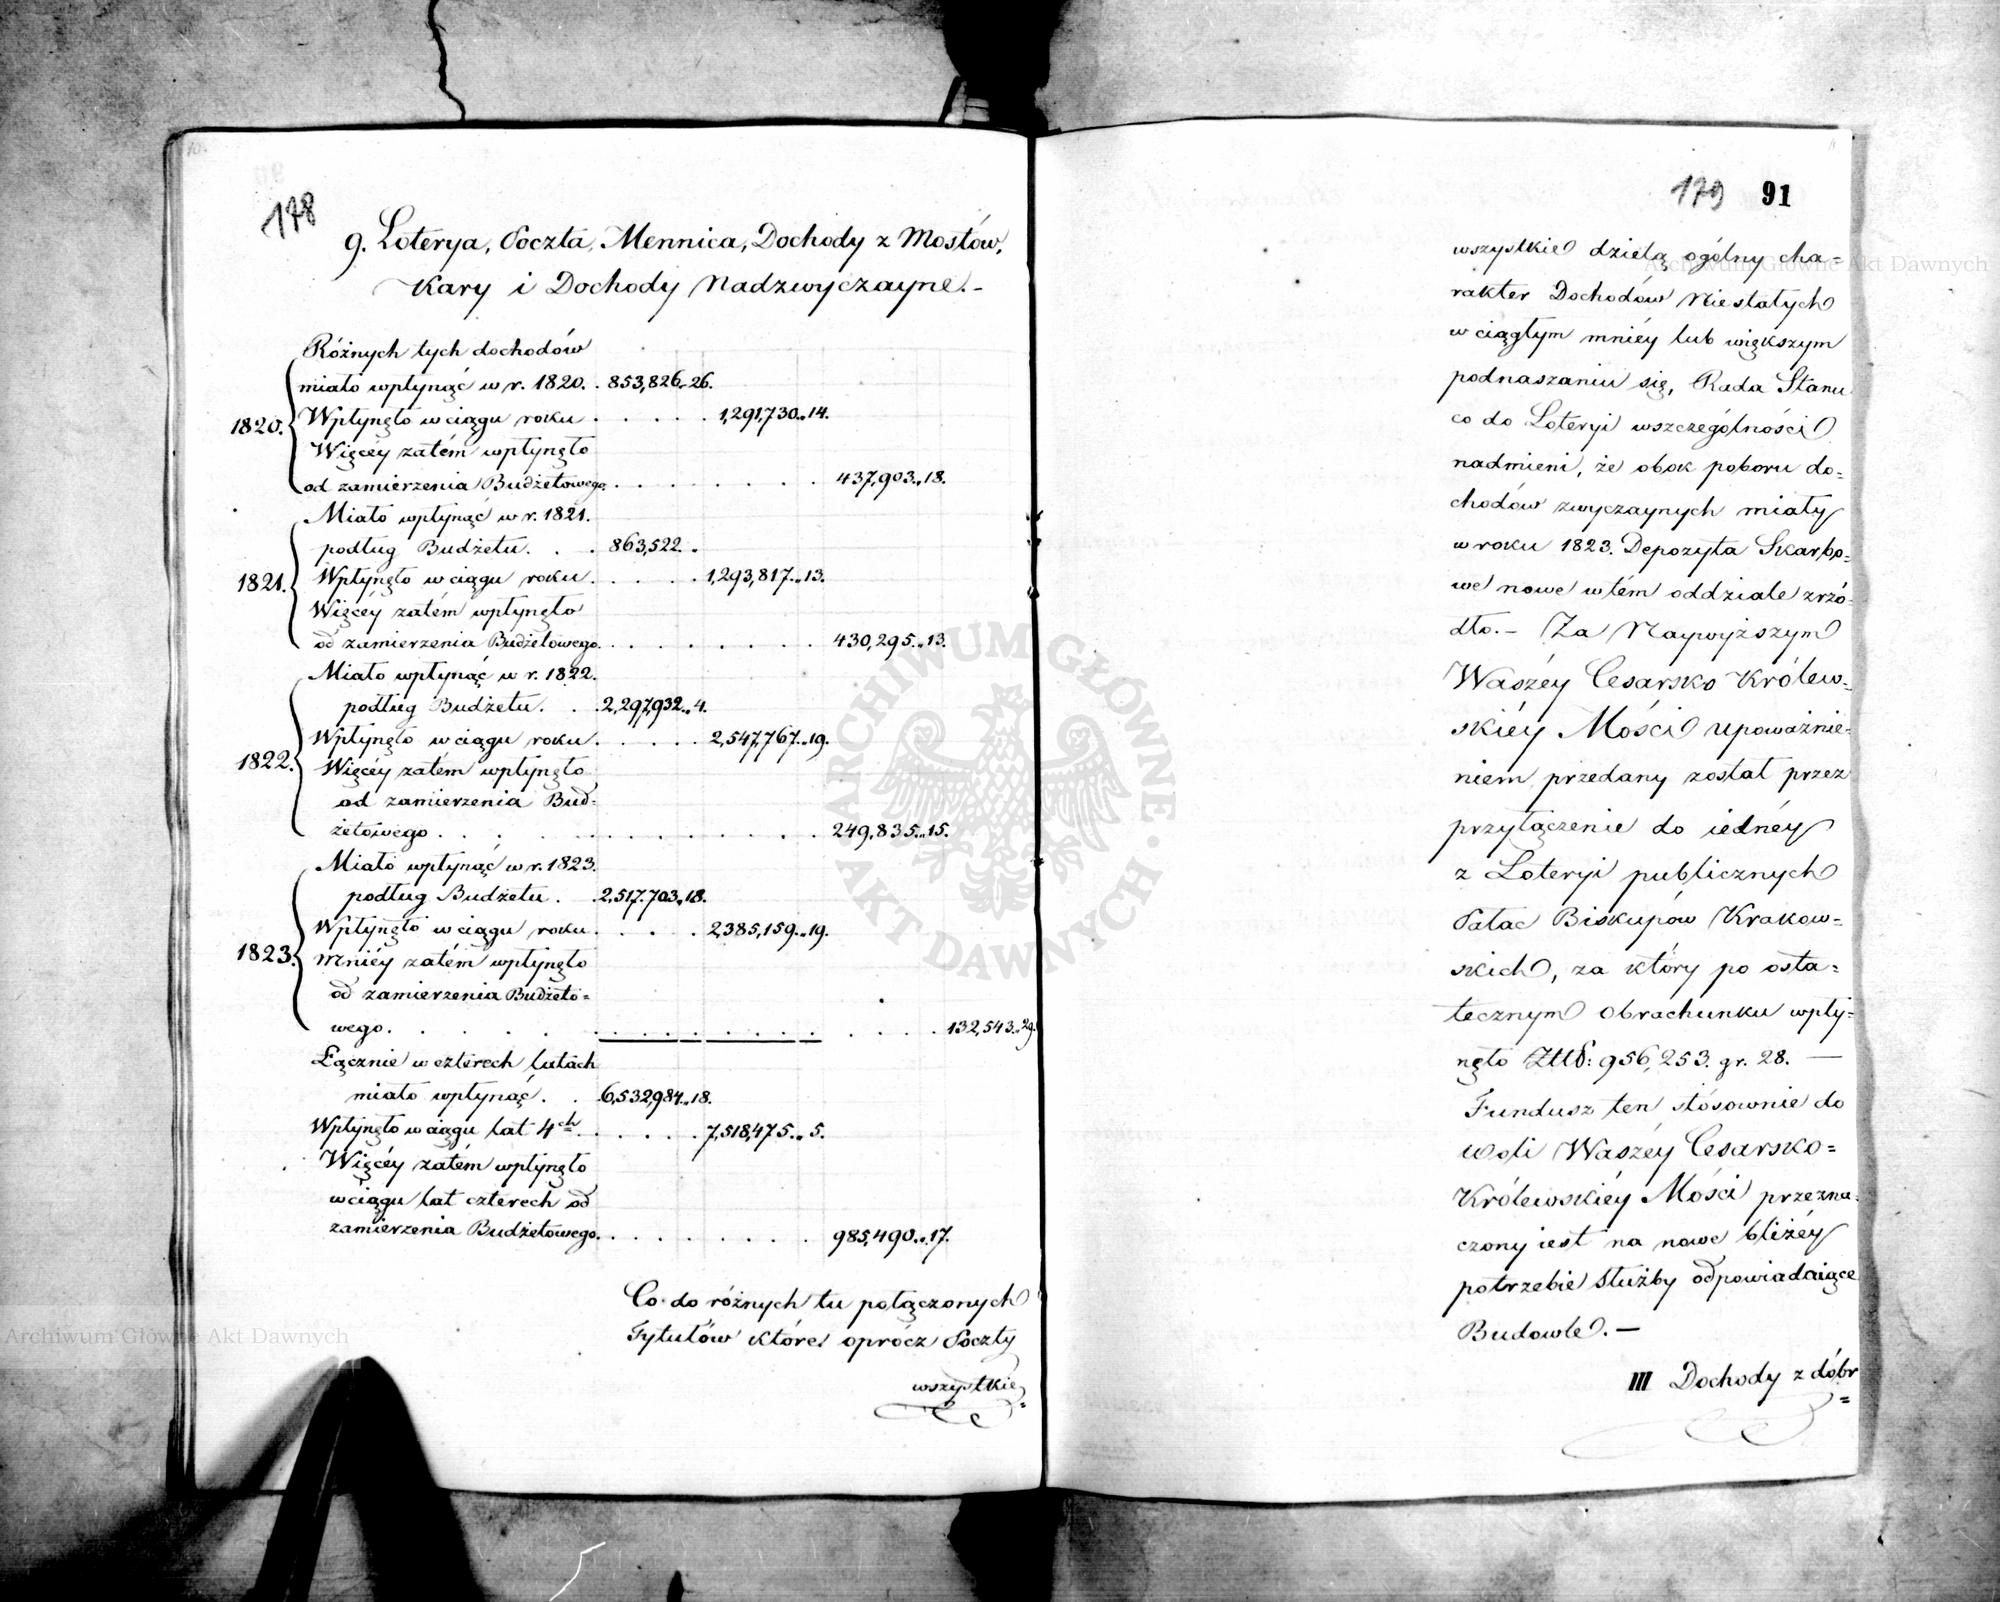 178
9. Loterya, Poczta, Mennica, Dochody z Mostów,
Kary i Dochody Nadzwyczayne.-
Różnych tych dochodów
miało wpłynąć w r. 1820. . 853,826„26.
1820. Wpłynęło w ciągu roku . . . . . 1,291,730„14.
Więcéy zatém wpłynęło
od zamierzenia Budżetowego. . . . . . . . 437,903„18.
Miało wpłynąć w r. 1821.
podług Budżetu. . . 863,522„.
1821. Wpłynęło w ciągu roku. . . . . 1,293,817„13.
Więcéy zatém wpłynęło
od zamierzenia Budżetowego. . . . . . . . 430,295„13.
Miało wpłynąć w r. 1822.
podług Budżetu. . . 2,297,932„4.
Wpłynęło w ciągu roku. . . . . 2,547,767„19.
1822. Więcéy zatém wpłynęło
od zamierzenia Bud=
żetowego . . . . . . . . . . . . 249,835„15.
Miało wpłynąć w r. 1823.
podług Budżetu . . 2,517,703„18.
Wpłynęło w ciągu roku. . . . . 2,385,159„19.
1823. Mniéy zatém wpłynęło
od zamierzenia Budżeto=
wego. . . . . . . . . . . . . . . . 132,543„29.
Łącznie w czterech latach
miało wpłynąć. . . 6,532,984„18.
Wpłynęło w ciągu lat 4ch. . . . . 7,518,475„5.
Więcéy zatém wpłynęło
w ciągu lat czterech od
zamierzenia Budżetowego. . . . . . . . . 985,490„17.
Co do różnych tu połączonych
Tytułów które oprócz Poczty
wszystkie=
179 91
wszystkie dzielą ogólny cha=
rakter Dochodów Niestałych
w ciągłym mniéy lub większym
podnaszaniu się, Rada Stanu
co do Loteryi wszczególności
nadmieni, że obok poboru do=
chodów zwyczaynych miały
w roku 1823. Depozyta Skarbo=
we nowe w tém oddziale zrzó=
dło.- Za Naywyższym
Waszéy Cesarsko Królew=
skiéy Mości upoważnie=
niem przedany został przez
przyłączenie do iednéy
z Loteryi publicznych
Pałac Biskupów Krakow=
skich, za który po osta=
tecznym obrachunku wpły=
nęło Złtt: 956,253. gr. 28. —
Fundusz ten stósownie do
woli Waszéy Cesarsko=
Królewskiéy Mości przezna=
czony iest na nowe bliżéy
potrzebie służby odpowiadaiące
Budowle. —
III Dochody z dóbr=
Archiwum Główne Akt Dawnych
ARCHIWUM GŁÓWNE AKT DAWNYCH
Archiwum Główne Akt Dawnych